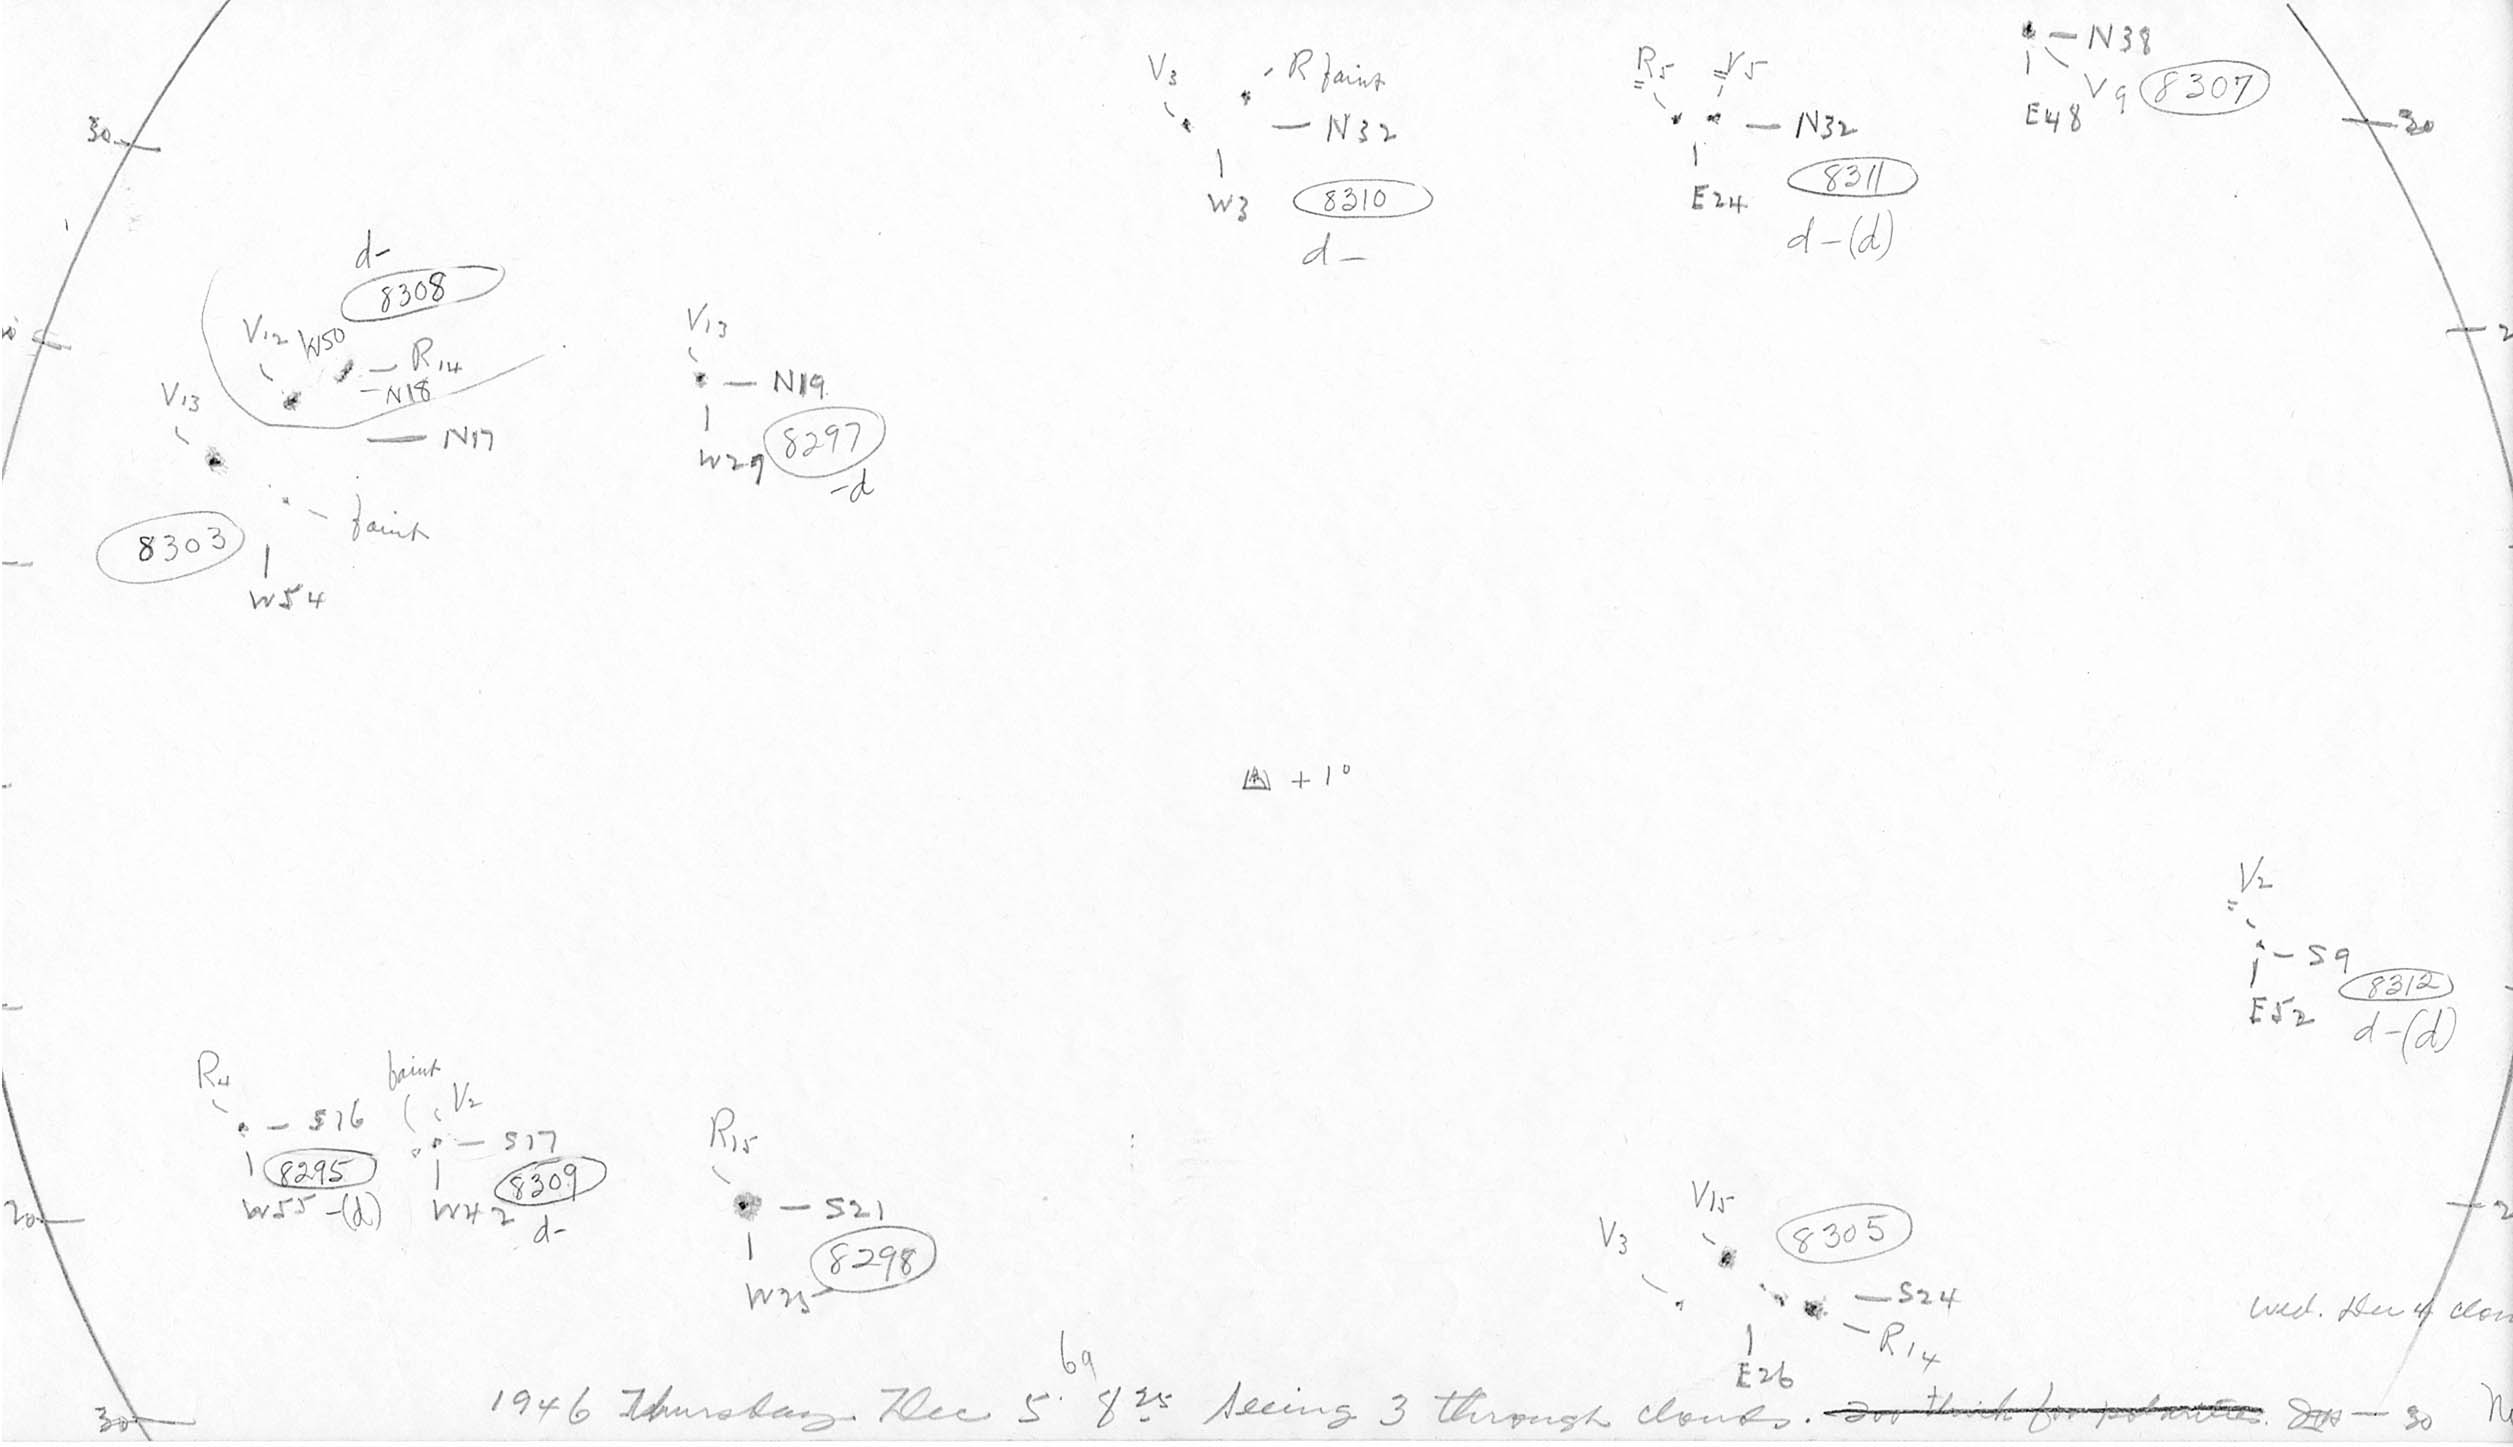 N38
V9 8307
E48
V3 R faint
N32
W3 8310
d-
R5 V5
N32
E24 8311
d-(d)
30
30
d-
8308
V12 W50 R14
N18
V13
N17
faint
8303
W54
V13
N19
W29 8297
-d
+1°
V2
S9
E52 8312
d-(d)
R4
S16
8295
W55 -(d)
faint V2
S17
8309
W42 d-
R15
S21
8298
W23
20
V15
V3 8305
S24
R14
E26
Wed. Dec 4
69
1946 Thursday Dec 5. 8 25 Seeing 3 through clouds. too thick for polarities.
30
30